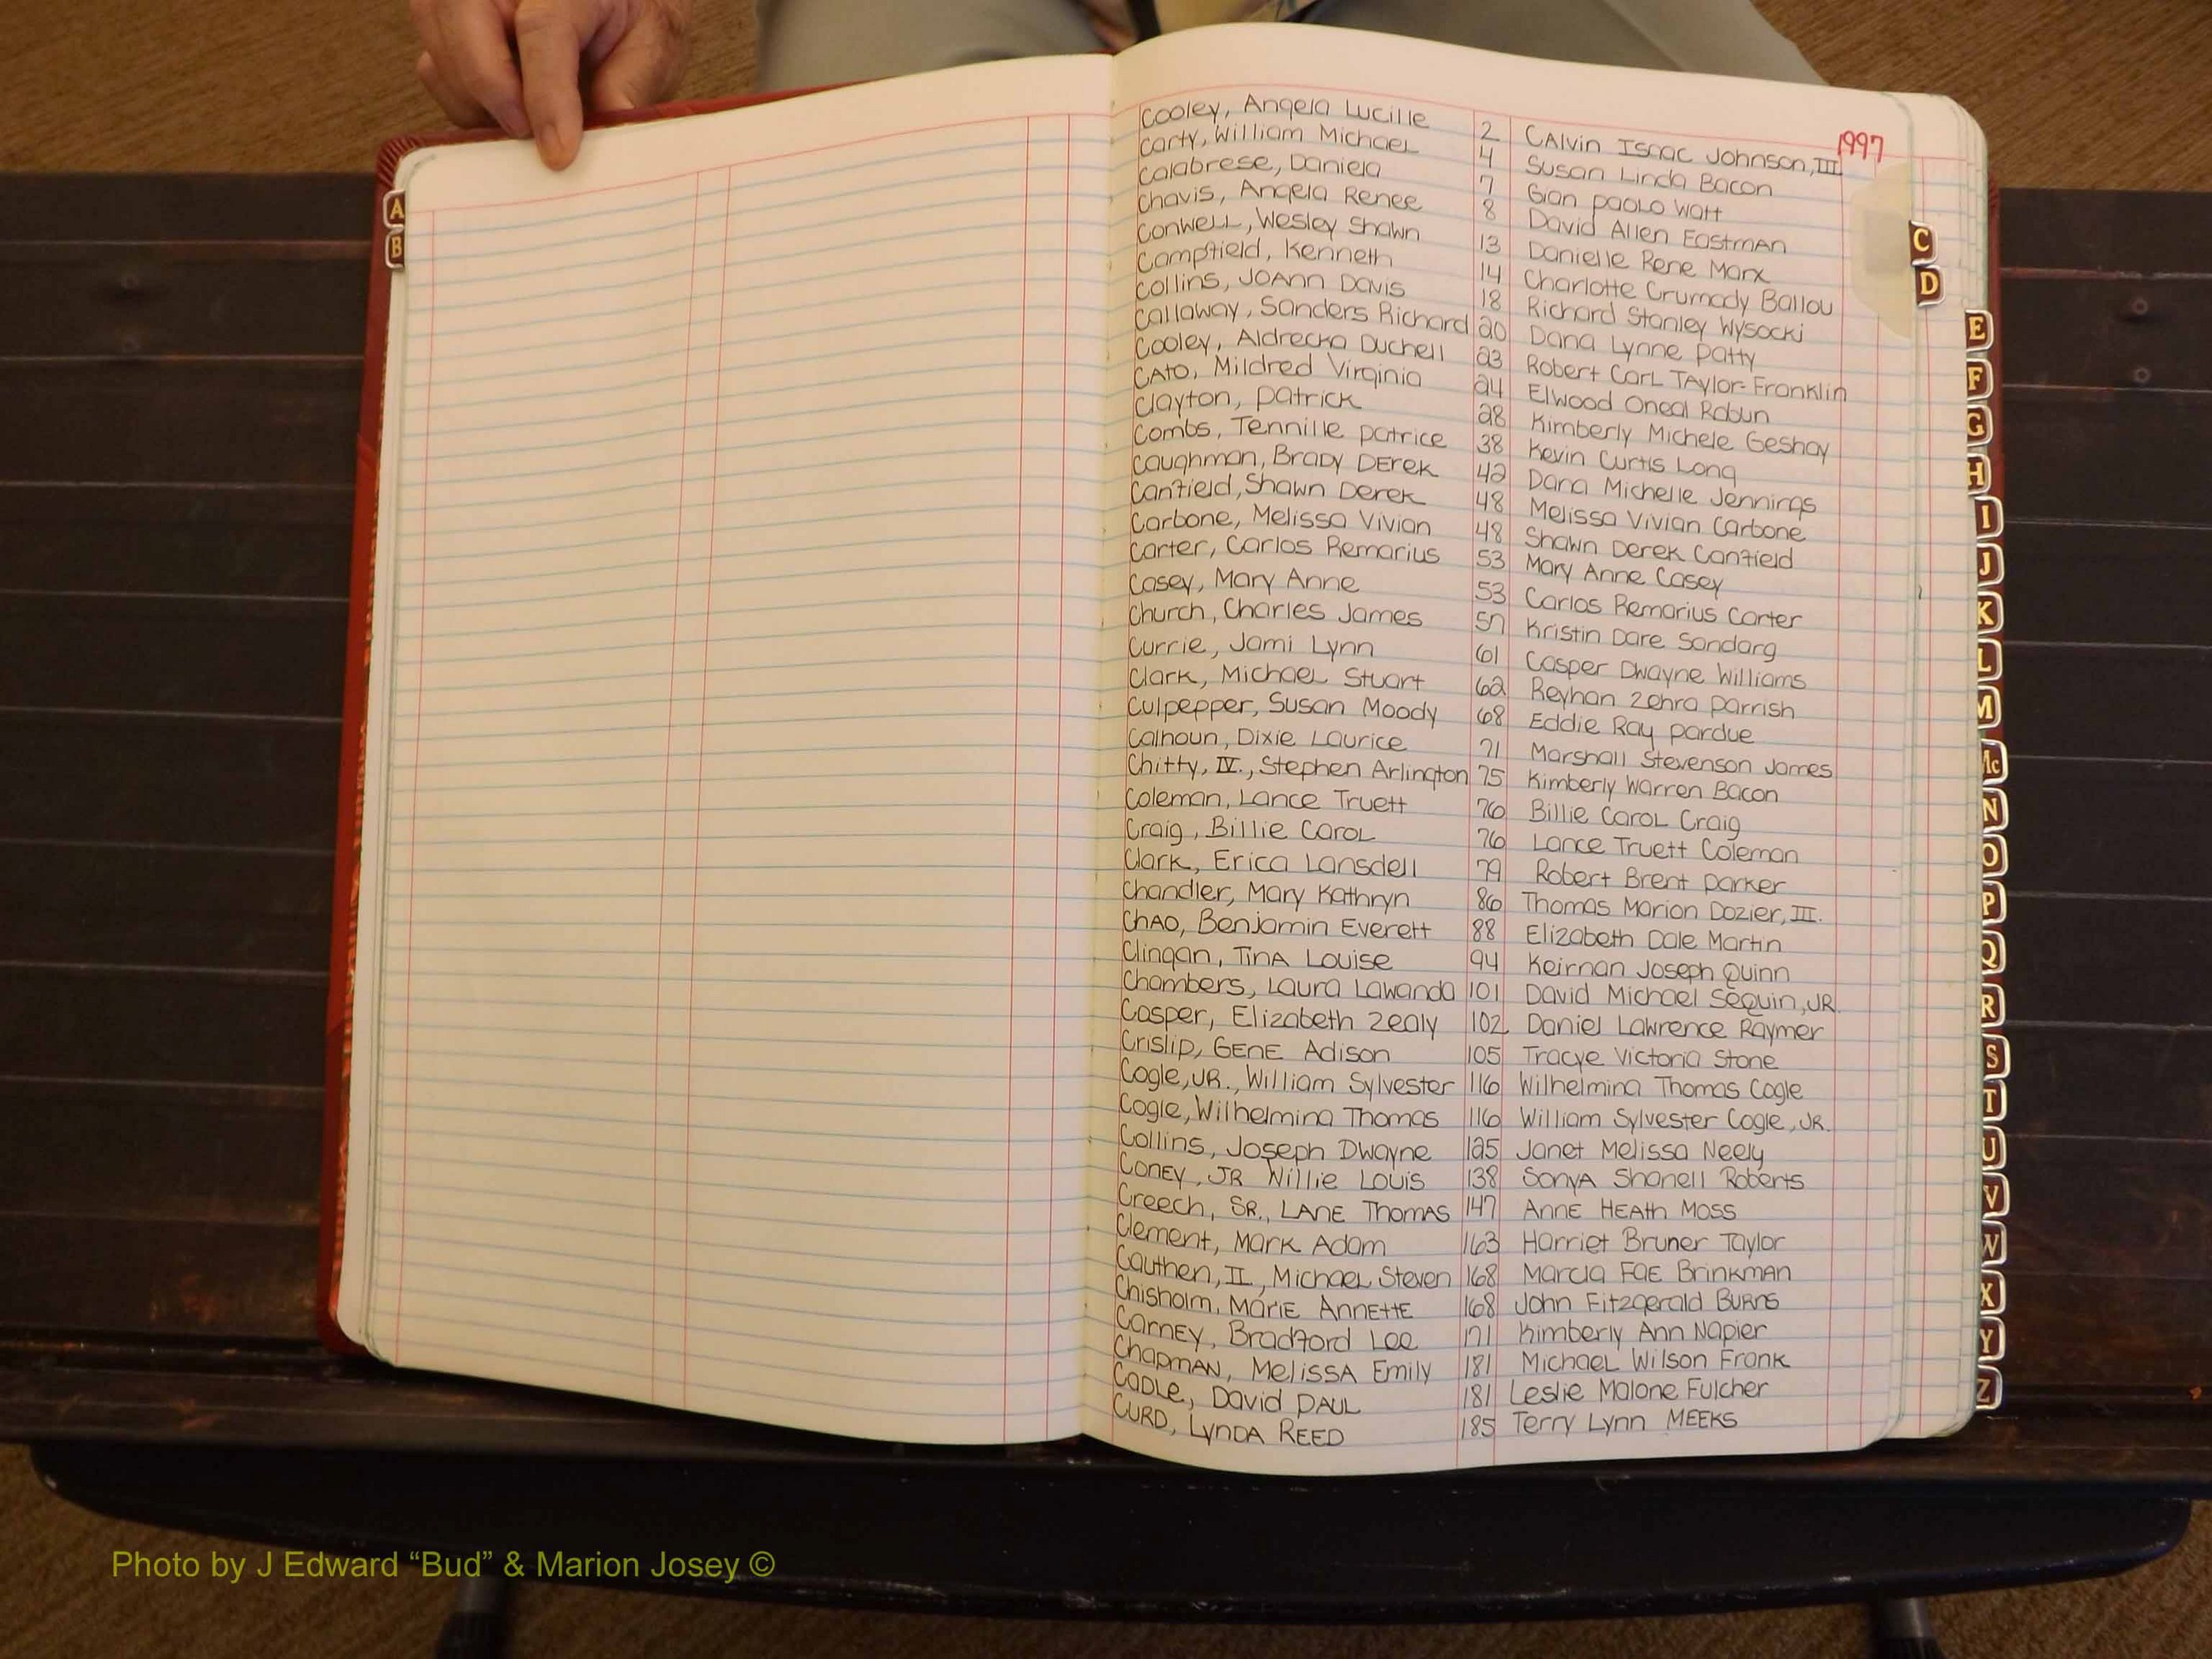 1997
Cooley, Angela Lucille 2 CAlvin Isaac Johnson, III
Carty, William Michael 4 Susan Linda Bacon
Calabrese, Daniela 7 Gian paoLo Watt
Chavis, Angela Renee 8 David Allen EastmAn
Conwell, Wesley Shawn 13 Danielle Rene Marx
Campfield, Kenneth 14 Charlotte Crumady Ballou
Collins, JoAnn Davis 18 Richard Stanley Wysocki
Callaway, Sanders Richard 20 Dana Lynne patty
Cooley, Aldrecka Duchell 23 Robert Carl TAylor-Franklin
CAto, Mildred Virginia 24 Elwood Oneal Rabun
Clayton, patrick 28 Kimberly Michele Geshay
Combs, Tennille patrice 38 Kevin Curtis Long
Caughman, Brady DErek 42 Dana Michelle Jennings
Canfield, Shawn Derek 48 Melissa Vivian Carbone
Carbone, Melissa Vivian 48 Shawn Derek Canfield
Carter, Carlos Remarius 53 Mary Anne Casey
Casey, Mary Anne 53 Carlos Remarius Carter
Church, Charles James 57 Kristin Dare Sandarg
Currie, Jami Lynn 61 Casper Dwayne Williams
Clark, Michael Stuart 62 Reyhan Zehra parrish
Culpepper, Susan Moody 68 Eddie Ray pardue
Calhoun, Dixie Laurice 71 Marshall Stevenson James
Chitty, IV., Stephen Arlington 75 Kimberly Warren Bacon
Coleman, Lance Truett 76 Billie Carol Craig
Craig, Billie Carol 76 Lance Truett Coleman
Clark, Erica Lansdell 79 Robert Brent parker
Chandler, Mary Kathryn 86 Thomas Marion Dozier, III.
ChAO, Benjamin Everett 88 Elizabeth Dale Martin
Clingan, TinA Louise 94 Keirnan Joseph Quinn
Chambers, Laura Lawanda 101 David Michael SeQuin, JR.
Casper, Elizabeth Zealy 102 Daniel Lawrence Raymer
Crislip, GENE Adison 105 Tracye Victoria Stone
Cogle, JR., William Sylvester 116 Wilhelmina Thomas Cogle
Cogle, Wilhelmina Thomas 116 William Sylvester Cogle, JR.
Collins, Joseph Dwayne 125 Janet Melissa Neely
ConEy, JR Willie Louis 138 SonyA Shanell Roberts
Creech, SR., LANE ThomAs 147 AnnE HEAth Moss
Clement, Mark Adam 163 Harriet Bruner Taylor
Cauthen, II, Michael Steven 168 Marcia FaE BrinkmAn
Chisholm, MariE AnnEttE 168 John Fitzgerald BuRns
CarnEy, Bradford Lee 171 Kimberly Ann Napier
ChapmAN, MelissA Emily 181 Michael Wilson Frank
CaDLe, David PAUL 181 Leslie Malone Fulcher
CURD, LynDA REED 185 Terry Lynn MEEKS
A
B
C
D
E
F
G
H
I
J
K
L
M
Mc
N
O
P
Q
R
S
T
U
V
W
X
Y
Z
Photo by J Edward “Bud” & Marion Josey ©